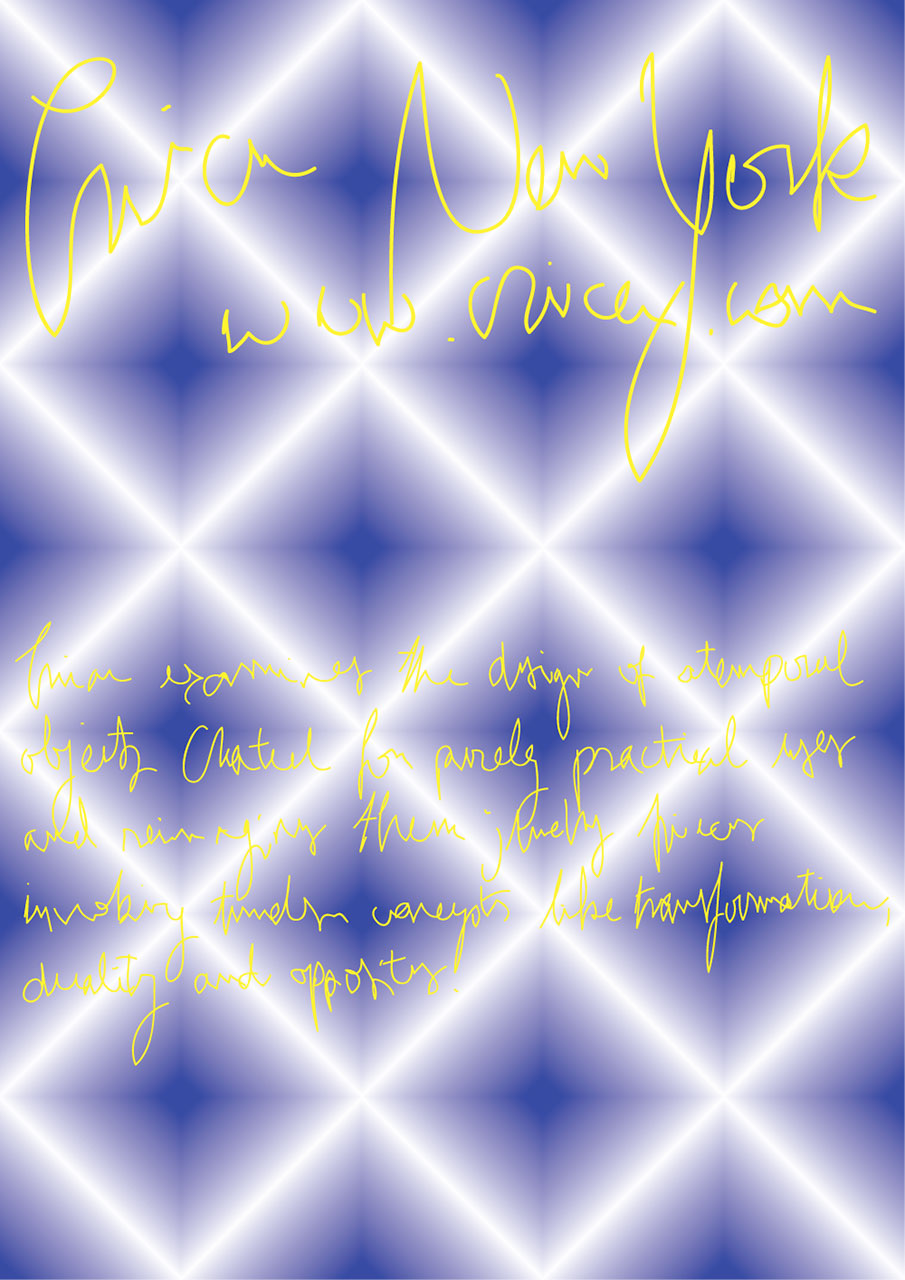 New York
www. .com
examines the design of atemporal
objects Created for purely practical uses
and reimagines them jewelry pieces
invoking concepts like transformation,
duality and opposity.